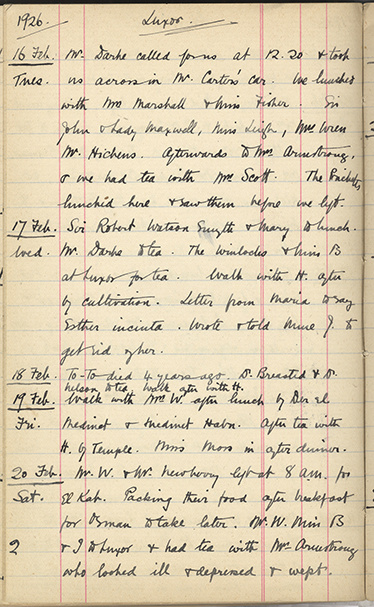 1926. Luxor.
16 Feb. Mr. Darke called for us at 12.20 & took
Tues. us across in Mr. Carter's car. We lunched
with Mrs Marshall & Miss Fisher. Sir
John & Lady Maxwell, Miss Leigh, Mrs Wren
Mr. Hichens. Afterwards to Mrs Armstrong,
& we had tea with Mr Scott. The
lunched here & saw them before we left.
17 Feb. Sir Robert Watson Smyth & Mary to lunch.
Wed. Mr. Darke to tea. The Winlocks & Miss B
at Luxor for tea. Walk with H. after
by cultivation. Letter from Maria to say
Esther incinta. Wrote & told Mme J. to
get rid of her.
18 Feb. To-To died 4 years ago. Dr. Breasted & Dr.
Nelson to tea. Walk after with H.
19 Feb. Walk with Mrs W. after lunch by Der el
Fri. Medinet & Medinet Habu. After tea with
H. by Temple. Miss Moss in after dinner.
20 Feb. Mr. W. & Mr. Newberry left at 8 a.m. for
Sat. El Kab. Packing their food after breakfast
for Osman to take later. Mr. W. Miss B
2 & I to Luxor & had tea with Mrs Armstrong
who looked ill & depressed & wept.